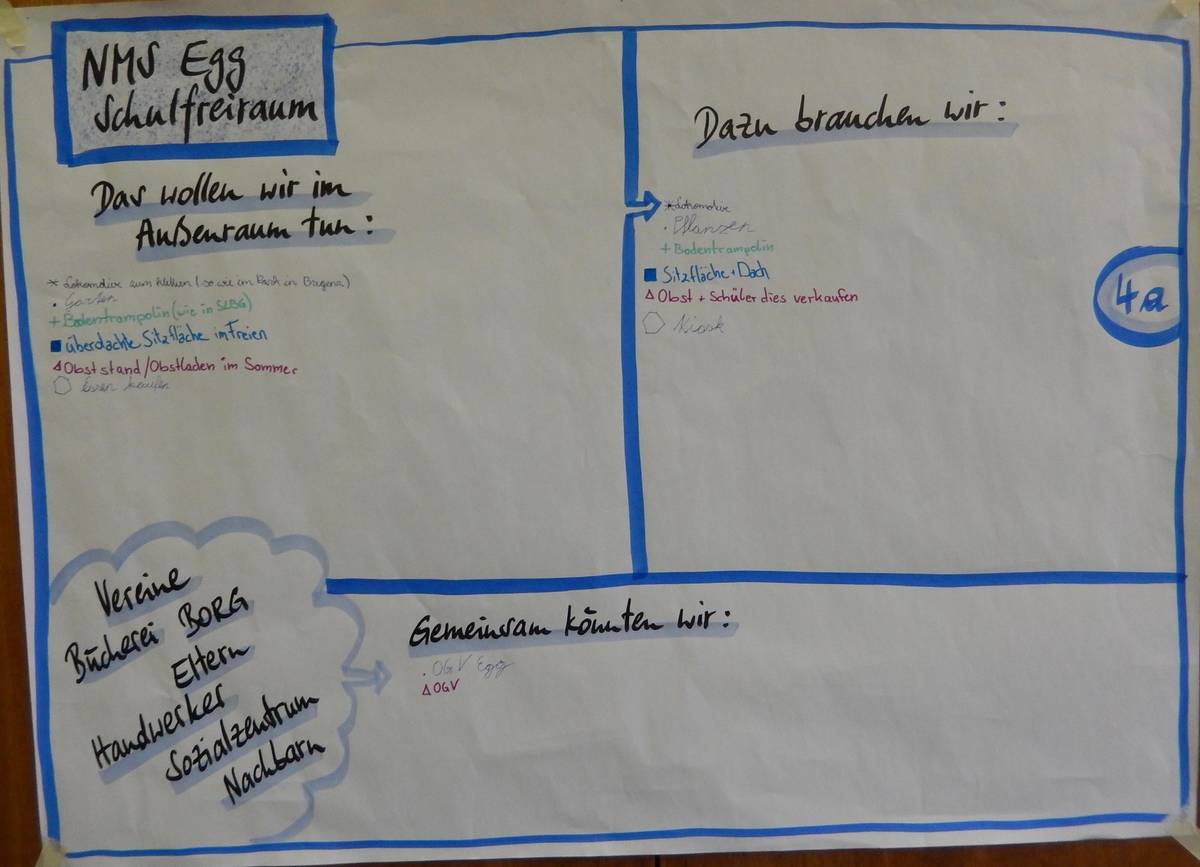 NMS Egg
Schulfreiraum
Das wollen wir im
Außenraum tun:
* Lokomotive zum klettern (so wie im Park in Bregenz)
· Garten
+ Bodentrampolin (wie in SLBG)
■ überdachte Sitzfläche im Freien
△ Obststand/Obstladen im Sommer
⬡ Essen kaufen
Dazu brauchen wir:
* Lokomotive
· Pflanzen
+ Bodentrampolin
■ Sitzfläche + Dach
△ Obst + Schüler dies verkaufen
⬡ Kiosk
4a
Vereine
Bücherei BORG
Eltern
Handwerker
Sozialzentrum
Nachbarn
Gemeinsam könnten wir:
· OGV Egg
△ OGV